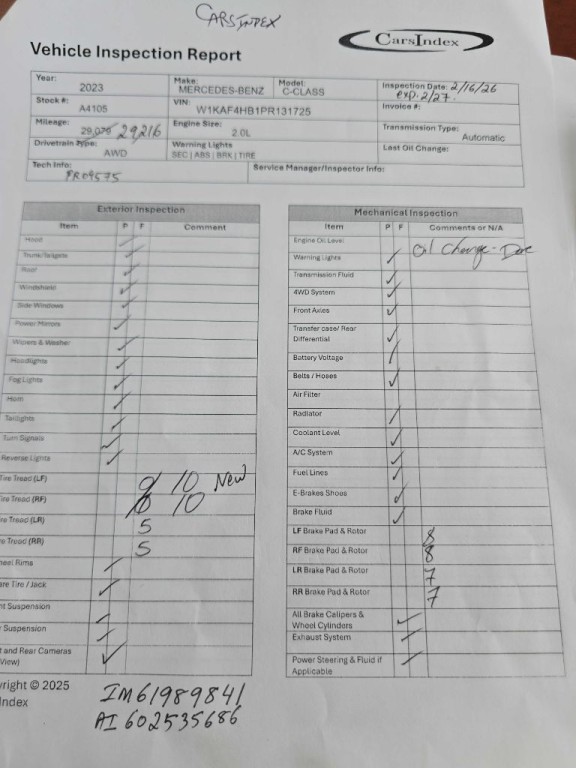 CARSINDEX
CarsIndex
Vehicle Inspection Report
Year: 2023 Make: MERCEDES-BENZ Model: C-CLASS Inspection Date: 2/16/26 exp. 2/27.
Stock #: A4105 VIN: W1KAF4HB1PR131725 Invoice #:
Mileage: 29,079 29216 Engine Size: 2.0L Transmission Type: Automatic
Drivetrain Type: AWD Warning Lights SEC | ABS | BRK | TIRE Last Oil Change:
Tech Info: PR09575 Service Manager/Inspector Info:
Exterior Inspection
Item P F Comment
Hood ✓
Trunk/Tailgate ✓
Roof ✓
Windshield ✓
Side Windows ✓
Power Mirrors ✓
Wipers & Washer ✓
Headlights ✓
Fog Lights ✓
Horn ✓
Taillights ✓
Turn Signals ✓
Reverse Lights ✓
Tire Tread (LF) 10 New
ire Tread (RF) 10
re Tread (LR) 5
e Tread (RR) 5
heel Rims ✓
are Tire / Jack ✓
nt Suspension ✓
Suspension ✓
t and Rear Cameras ✓
View)
Mechanical Inspection
Item P F Comments or N/A
Engine Oil Level Oil Change - Due
Warning Lights ✓
Transmission Fluid ✓
4WD System ✓
Front Axles ✓
Transfer case/ Rear
Differential ✓
Battery Voltage ✓
Belts / Hoses ✓
Air Filter
Radiator ✓
Coolant Level ✓
A/C System ✓
Fuel Lines ✓
E-Brakes Shoes ✓
Brake Fluid ✓
LF Brake Pad & Rotor 8
RF Brake Pad & Rotor 8
LR Brake Pad & Rotor 7
RR Brake Pad & Rotor 7
All Brake Calipers &
Wheel Cylinders ✓
Exhaust System ✓
Power Steering & Fluid if
Applicable ✓
yright © 2025
Index
IM61989841
AI 602535686